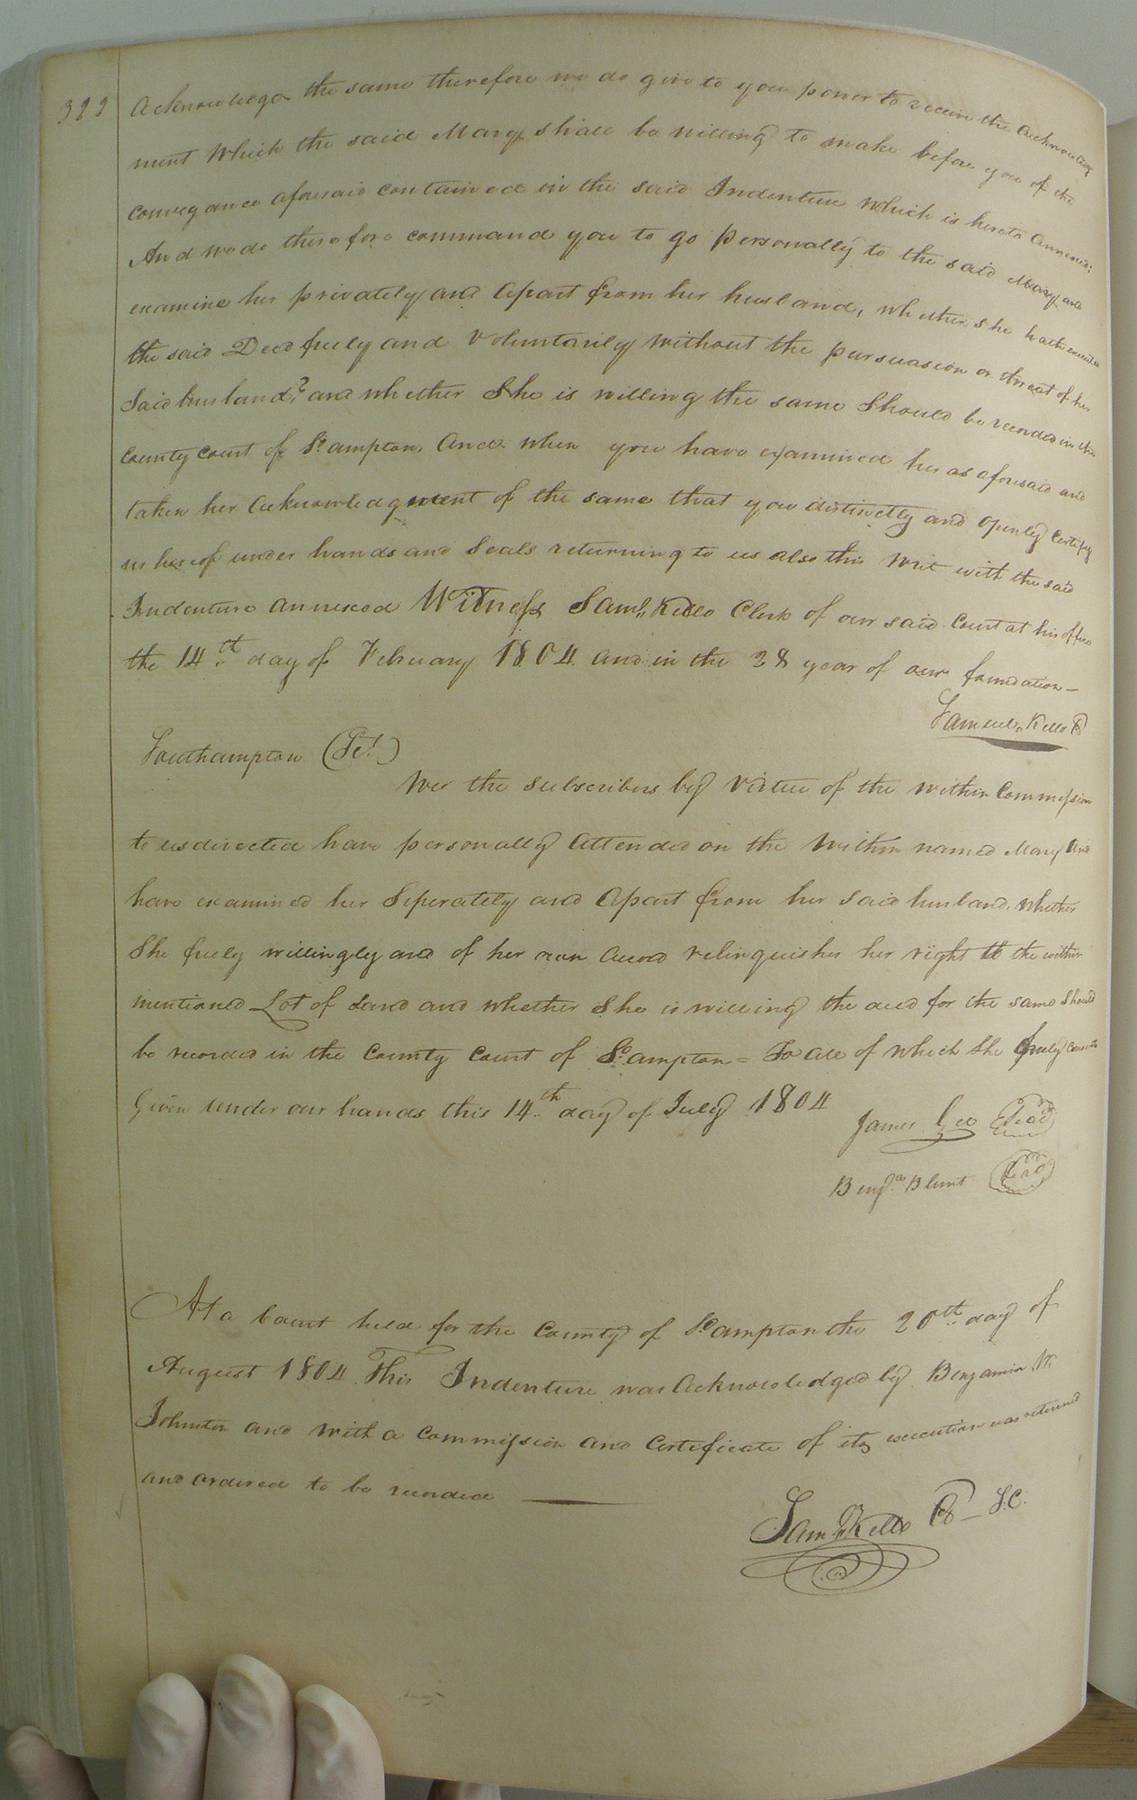 322
Acknowledge the same therefore we do give to you power to receive the acknowledg
ment Which the said Mary shall be willing to make before you of the
conveyance aforesaid contained in the said Indenture which is hereto annexed:
And we do therefore command you to go personally to the said Mary and
examine her privately and apart from her husband, whether she hath executed
the said Deed freely and Voluntarily without the persuasion or threat of her
Said husband? and whether She is willing the same Should be recorded in the
County Court of So.ampton. And when you have examined her as aforesaid and
taken her acknowledgment of the same that you distinctly and openly Certify
us hereof under hands and Seals returning to us also this Writ with the said
Indenture annexed Witness Saml. Kello Clerk of our said Court at his office
the 14.th day of February 1804 and in the 28 year of our foundation—
Samuel, Kello
Southampton (Sct.)
Wee the subscribers by Virtue of the within Commission
to us directed have personally Attended on the Within named Mary And
have examined her Seperately and Apart from her said husband. whether
She freely willingly and of her own Accord relinquishes her right to the within
mentioned Lot of Land and whether She is willing the deed for the same Should
be recorded in the County Court of So.ampton = To all of which She freely
Given under our hands this 14.th day of July 1804
James Gee Seal
Benja. Blunt Seal
At a Court held for the County of So.ampton the 20th day of
August 1804 This Indenture was Acknowledged by Benjamin W.
Johnston and with a commission and Certificate of its execution was returned
and ordered to be recorded
Saml. Kello S.C.